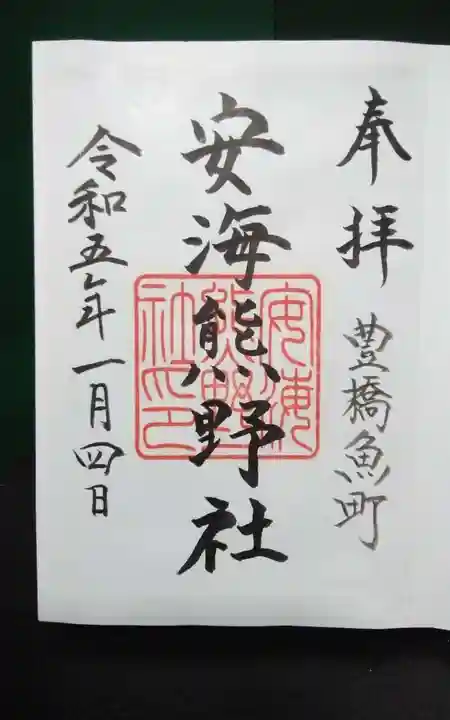 奉拝 豊橋魚町
安海熊野社
安海熊野社印
令和五年一月四日